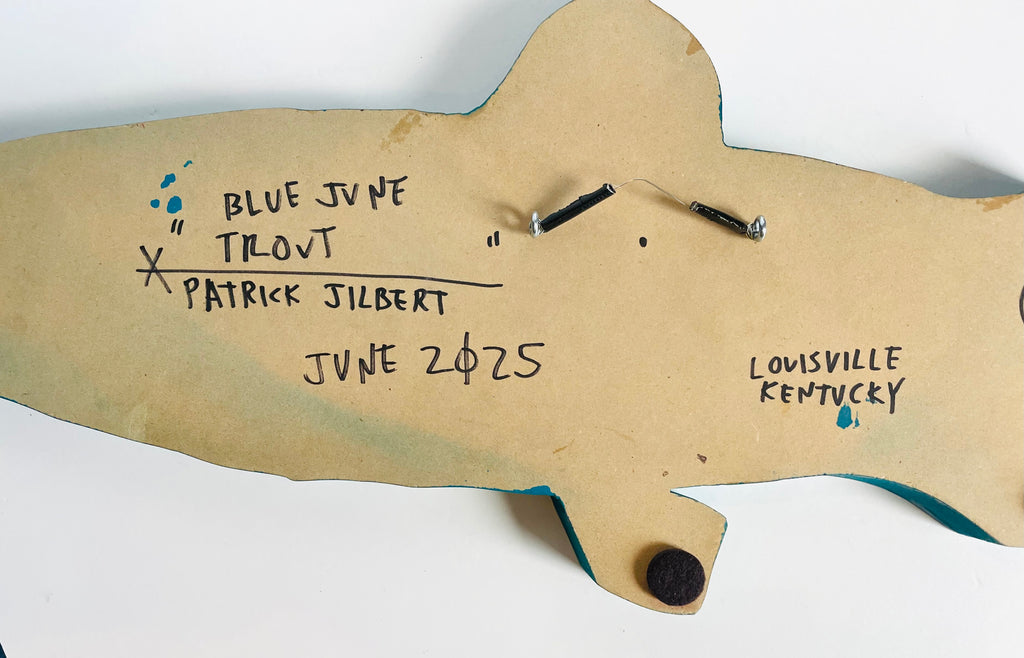 " BLUE JUNE
TROUT "
X PATRICK JILBERT
JUNE 2025
LOUISVILLE
KENTUCKY